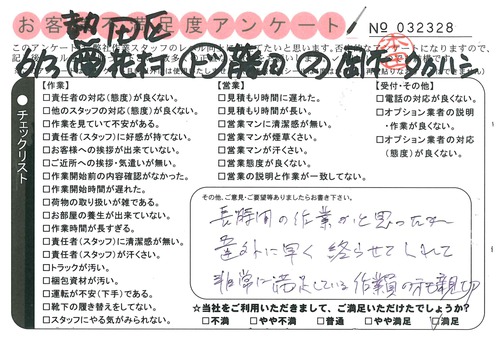 お客様不満足度アンケート
No 032328
熱田区
【作業】
□責任者の対応(態度)が良くない。
□他のスタッフの対応(態度)が良くない。
□作業を見ていて不安がある。
□責任者(スタッフ)に好感が持てない。
□お客様への挨拶が出来ていない。
□ご近所への挨拶・気遣いが無い。
□作業開始前の内容確認がなかった。
□作業開始時間が遅れた。
□荷物の取り扱いが雑である。
□お部屋の養生が出来ていない。
□作業時間が長すぎる。
□責任者(スタッフ)に清潔感が無い。
□責任者(スタッフ)が汗くさい。
□トラックが汚い。
□梱包資材が汚い。
□運転が不安(下手)である。
□靴下の履き替えをしてない。
□スタッフにやる気がみられない。
【営業】
□見積もり時間に遅れた。
□見積もり時間が長い。
□営業マンに清潔感が無い。
□営業マンが煙草くさい。
□営業マンが汗くさい。
□営業態度が良くない。
□営業の説明と作業が一致してない。
【受付・その他】
□電話の対応が良くない。
□オプション業者の説明
・作業が良くない。
□オプション業者の対応
(態度)が良くない。
チェックリスト
その他、ご意見・ご要望等ありましたらお書き下さい。
長時間の作業かと思ったが
意外に早く終らせてくれて
非常に満足している 作業員の 親切
☆当社をご利用いただきまして、ご満足いただけたでしょうか?
□不満 □やや不満 □普通 □やや満足 □満足